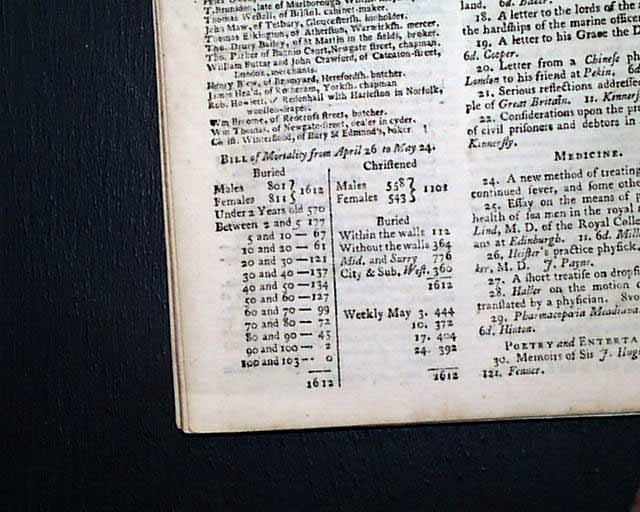 T. Brundon, late of Marlborough
Thomas Westell, of Bristol, cabinet-maker.
John Maw, of Tetbury, Gloucestersh. innholder.
Thomas Elkington, of Atherston, Warwicksh. mercer.
Tho. Drury Bailey, of St Martin in the fields, broker.
Tho. Parker of Bannio Court, Newgate street, chapman.
William Buttar and John Crawford, of Cateaton-street,
London, merchants.
Henry of Bromyard, Herefordsh. butcher.
James Heald, of Rotheram, Yorksh. chapman
Rob. Howlett, of Redenhall with Harleston in Norfolk,
woollen-draper.
Wm Broome, of Redcross street, butcher.
Wm Thomas, of Newgate-street, dealer in cyder.
of Bury St Edmund's, baker
BILL of Mortality from April 26 to May 24.
Buried
Males 801 } 1612
Females 811
Under 2 Years old 570
Between 2 and 5 177
5 and 10 — 67
10 and 20 — 61
20 and 30 — 121
30 and 40 — 137
40 and 50 — 134
50 and 60 — 127
60 and 70 — 99
70 and 80 — 72
80 and 90 — 45
90 and 100 — 2
100 and 103 — 0
1612
Christened
Males 558 } 1101
Females 543
Buried
Within the walls 112
Without the walls 364
Mid. and Surry 776
City & Sub. West. 360
1612
Weekly May 3. 444
10. 372
17. 404
24. 392
1612
land. 6d.
18. A letter to the lords of the
the hardships of the marine office
19. A letter to his Grace the D
6d. Cooper.
20. Letter from a Chinese ph
London to his friend at Pekin. 6d
21. Serious reflections addresse
ple of Great Britain. 1s. Kinners
22. Considerations upon the pr
of civil prisoners and debtors in
Kinnersly.
MEDICINE.
24. A new method of treating
continued fever, and some othe
25. Essay on the means of p
health of sea men in the royal
Lind, M. D. of the Royal Colle
ans at Edinburgh. 1s. 6d. Mill
26. Heister's practice physick.
ker, M. D. J. Payne.
27. A short treatise on dropsi
28. Haller on the motion
translated by a physician. 8vo
29. Pharmacopœia Meadiana
6d. Hinton.
POETRY and ENTERTA
30. Memoirs of Sir J. Hug
12s. Fenner.